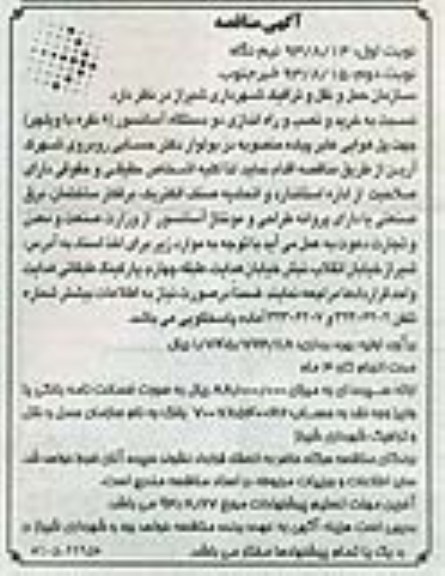 آگهی مناقصه
نوبت اول: ۹۳/۸/۱۳ نیم نگاه
نوبت دوم: ۹۳/۸/۱۵ خبر جنوب
سازمان حمل و نقل و ترافیک شهرداری شیراز در نظر دارد
نسبت به خرید و نصب و راه اندازی دو دستگاه آسانسور (۸ نفره با ویلچر)
جهت پل هوایی عابر پیاده منصوبه در بولوار دکتر حسابی روبروی شهرک
آرین از طریق مناقصه اقدام نماید لذا کلیه اشخاص حقیقی و حقوقی دارای
صلاحیت از اداره استاندارد و اتحادیه صنف الکتریک، برقکار ساختمان، برق
صنعتی یا دارای پروانه طراحی و مونتاژ آسانسور از وزارت صنعت و معدن
و تجارت دعوت به عمل می آید با توجه به موارد زیر برای اخذ اسناد به آدرس:
شیراز خیابان انقلاب نبش خیابان هدایت طبقه چهارم پارکینگ طبقاتی هدایت
واحد قراردادها مراجعه نمایند. ضمناً در صورت نیاز به اطلاعات بیشتر شماره
تلفن آماده پاسخگویی می باشد.
برآورد اولیه ریال
مدت انجام کار ۴ ماه
ارائه سپرده ای به مبلغ ریال به صورت ضمانت نامه بانکی یا
واریز وجه نقد به حساب بانک به نام سازمان حمل و نقل
و ترافیک شهرداری شیراز
برندگان مناقصه هرگاه حاضر به انعقاد قرارداد نشوند سپرده آنان ضبط خواهد شد.
سایر اطلاعات و جزئیات مربوطه در اسناد مناقصه مندرج است.
آخرین مهلت تسلیم پیشنهادات مورخ می باشد.
بدیهی است هزینه آگهی به عهده برنده مناقصه خواهد بود و شهرداری شیراز در
رد یک یا تمام پیشنهادها مختار می باشد.